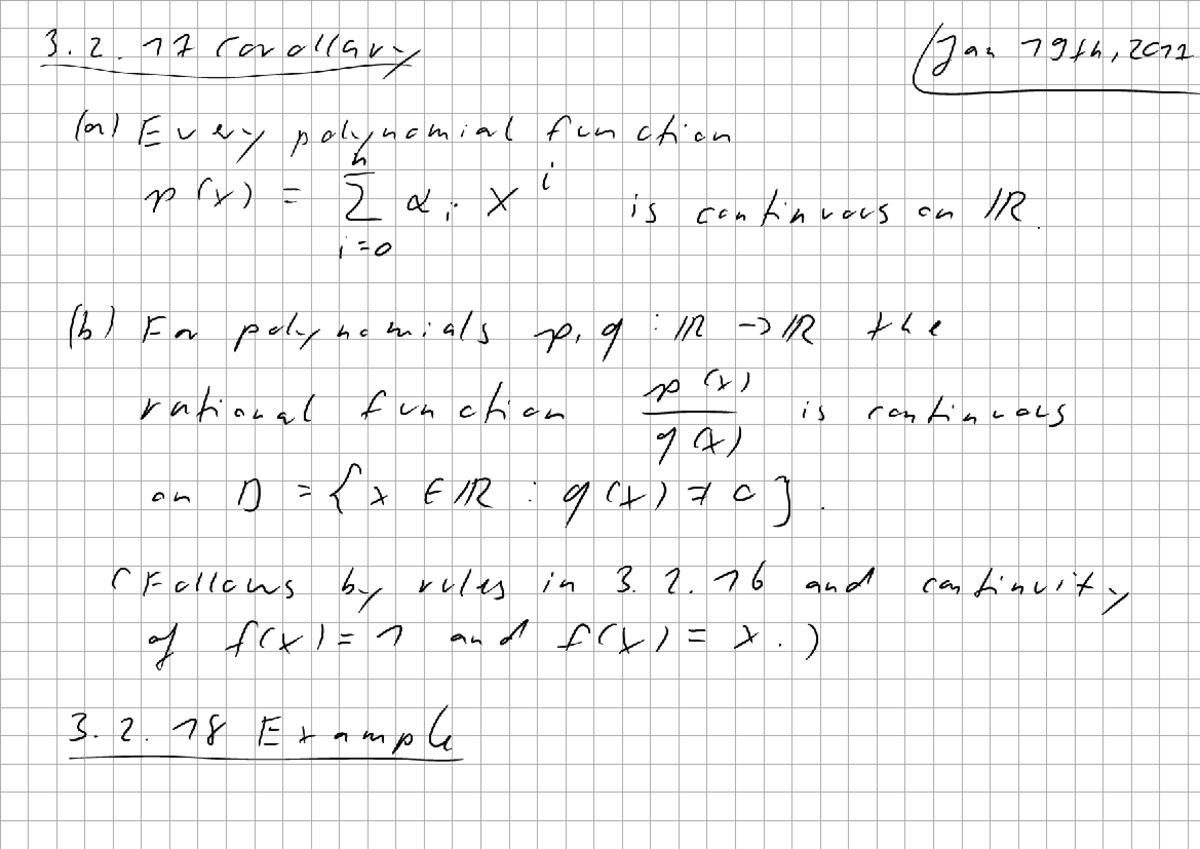 3.2.17 Corollary
Jan 19th, 2011
(a) Every polynomial function
p(x) = \sum_{i=0}^{n} α_i x^i is continuous on ℝ.
(b) For polynomials p, q : ℝ → ℝ the
rational function \frac{p(x)}{q(x)} is continuous
on D = {x ∈ ℝ : q(x) ≠ 0}.
(Follows by rules in 3.2.16 and continuity
of f(x) = 1 and f(x) = x.)
3.2.18 Example